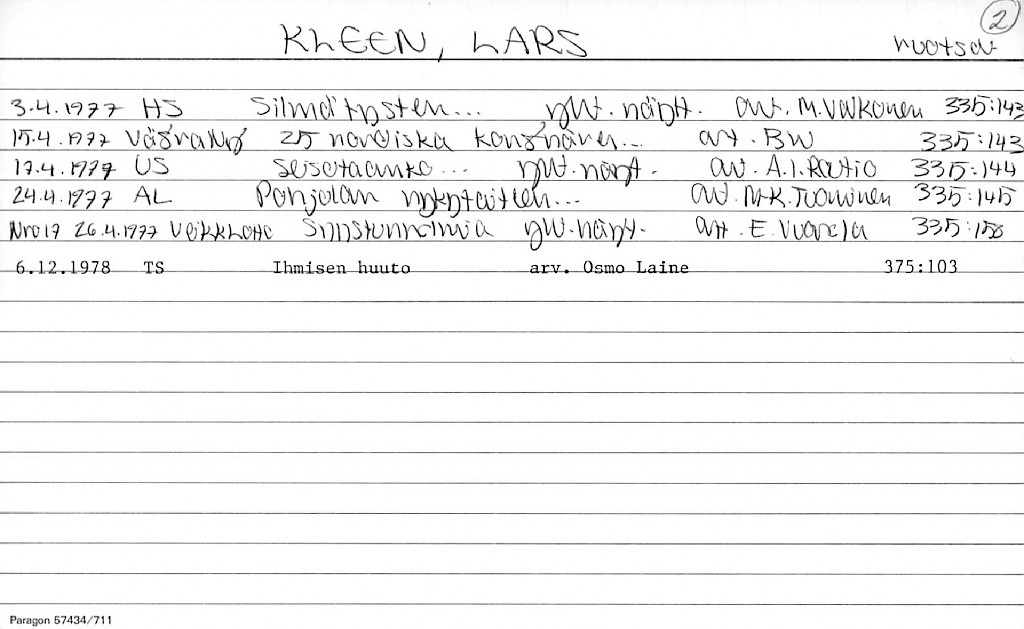 2
KLEEN, LARS ruotsal.
3.4.1977 HS Silmätysten... yht. näytt. arv. M.Valkonen 335:143
15.4.1977 25 nordiska konstnärer... art. BW 335:143
17.4.1977 US Seisotaanko... yht. näytt. arv. A.I.Routio 335:144
24.4.1977 AL Pohjolan nykytaiteen... arv. M-K.Tuominen 335:145
Nro 17 26.4.1977 yht. näytt. art. E.Vuorela 335:158
6.12.1978 TS Ihmisen huuto arv. Osmo Laine 375:103
Paragon 57434/711